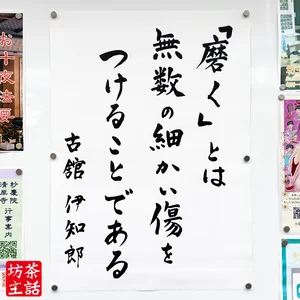 「磨く」とは
無数の細かい傷を
つけることである
古舘 伊知郎
お十夜法要
妙慶院
清岸寺
行事案内
坊主
茶話